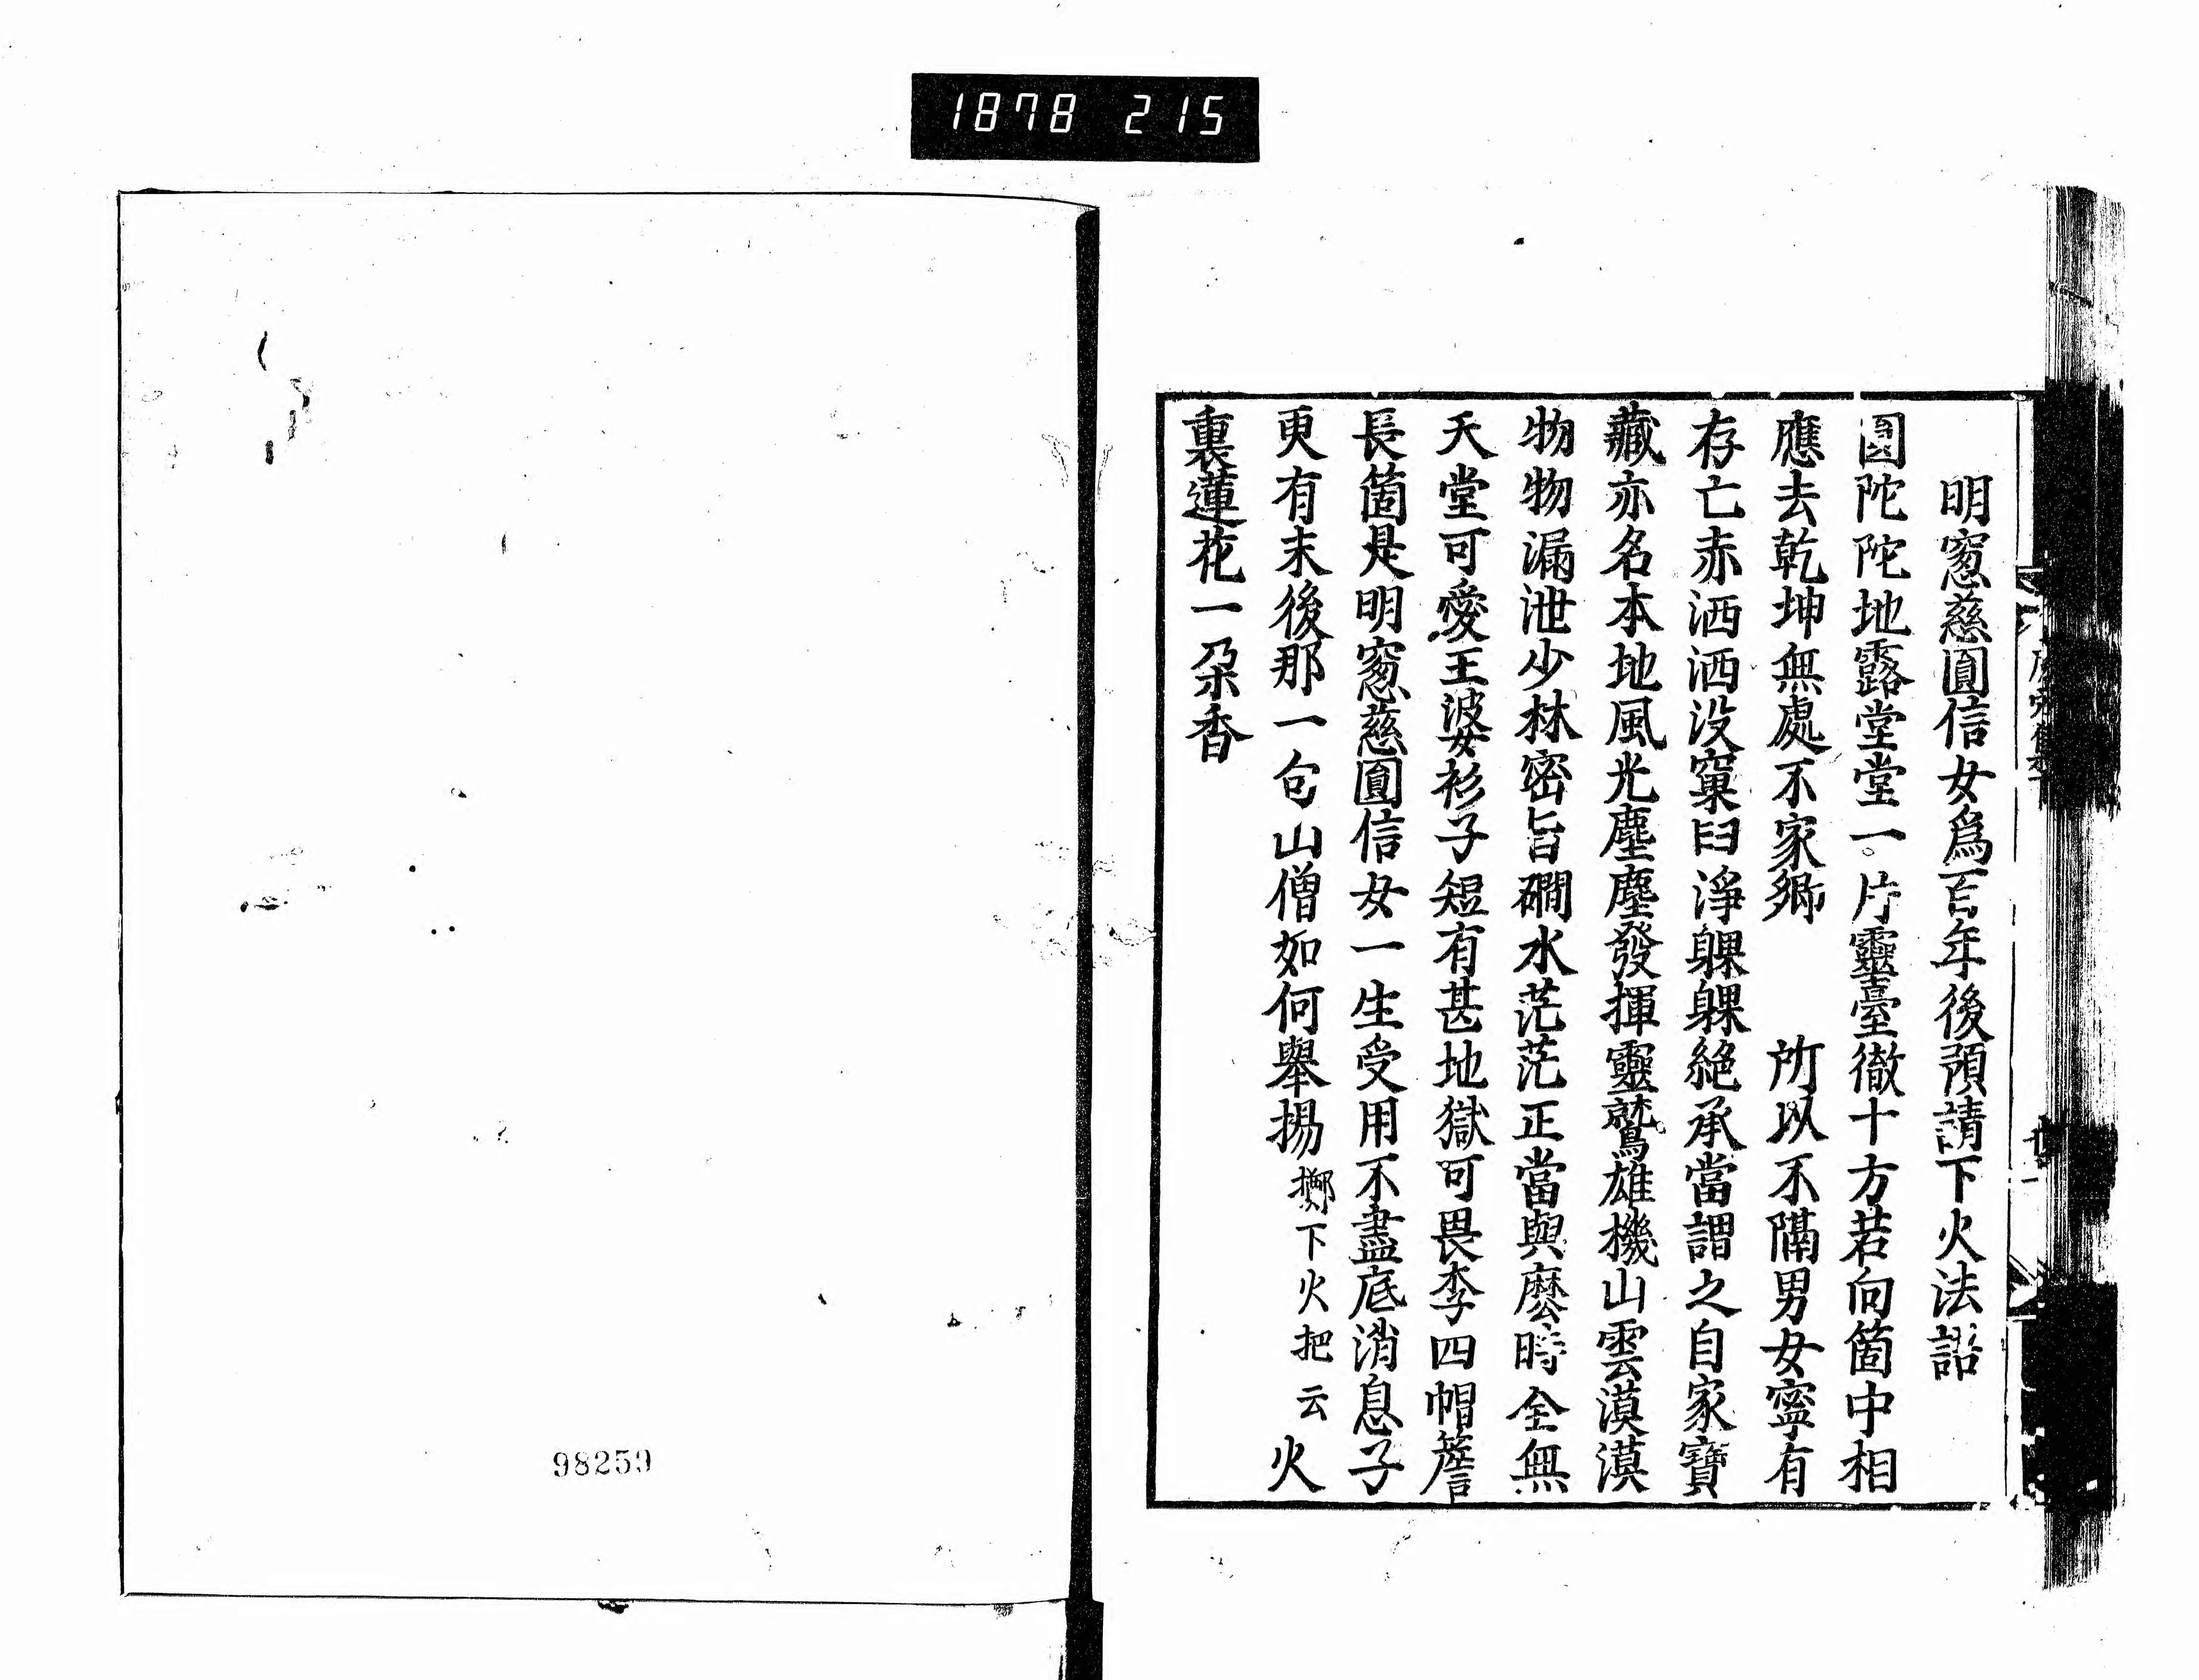 1878 215
明窓慈圓信女爲百年後預請下火法語
圓陀陀地露堂堂一片靈臺徹十方若向箇中相
應去乾坤無處不家鄉　所以不隔男女寧有
存亡赤洒洒没窠臼淨躶躶絶承當謂之自家寶
藏亦名本地風光塵塵發揮靈鷲雄機山雲漠漠
物物漏泄少林密旨磵水茫茫正當與麽時全無
天堂可愛王婆衫子短有甚地獄可畏李四帽簷
長箇是明窓慈圓信女一生受用不盡底消息子
更有末後那一句山僧如何舉揚擲下火把云火
裏蓮花一朶香
98259